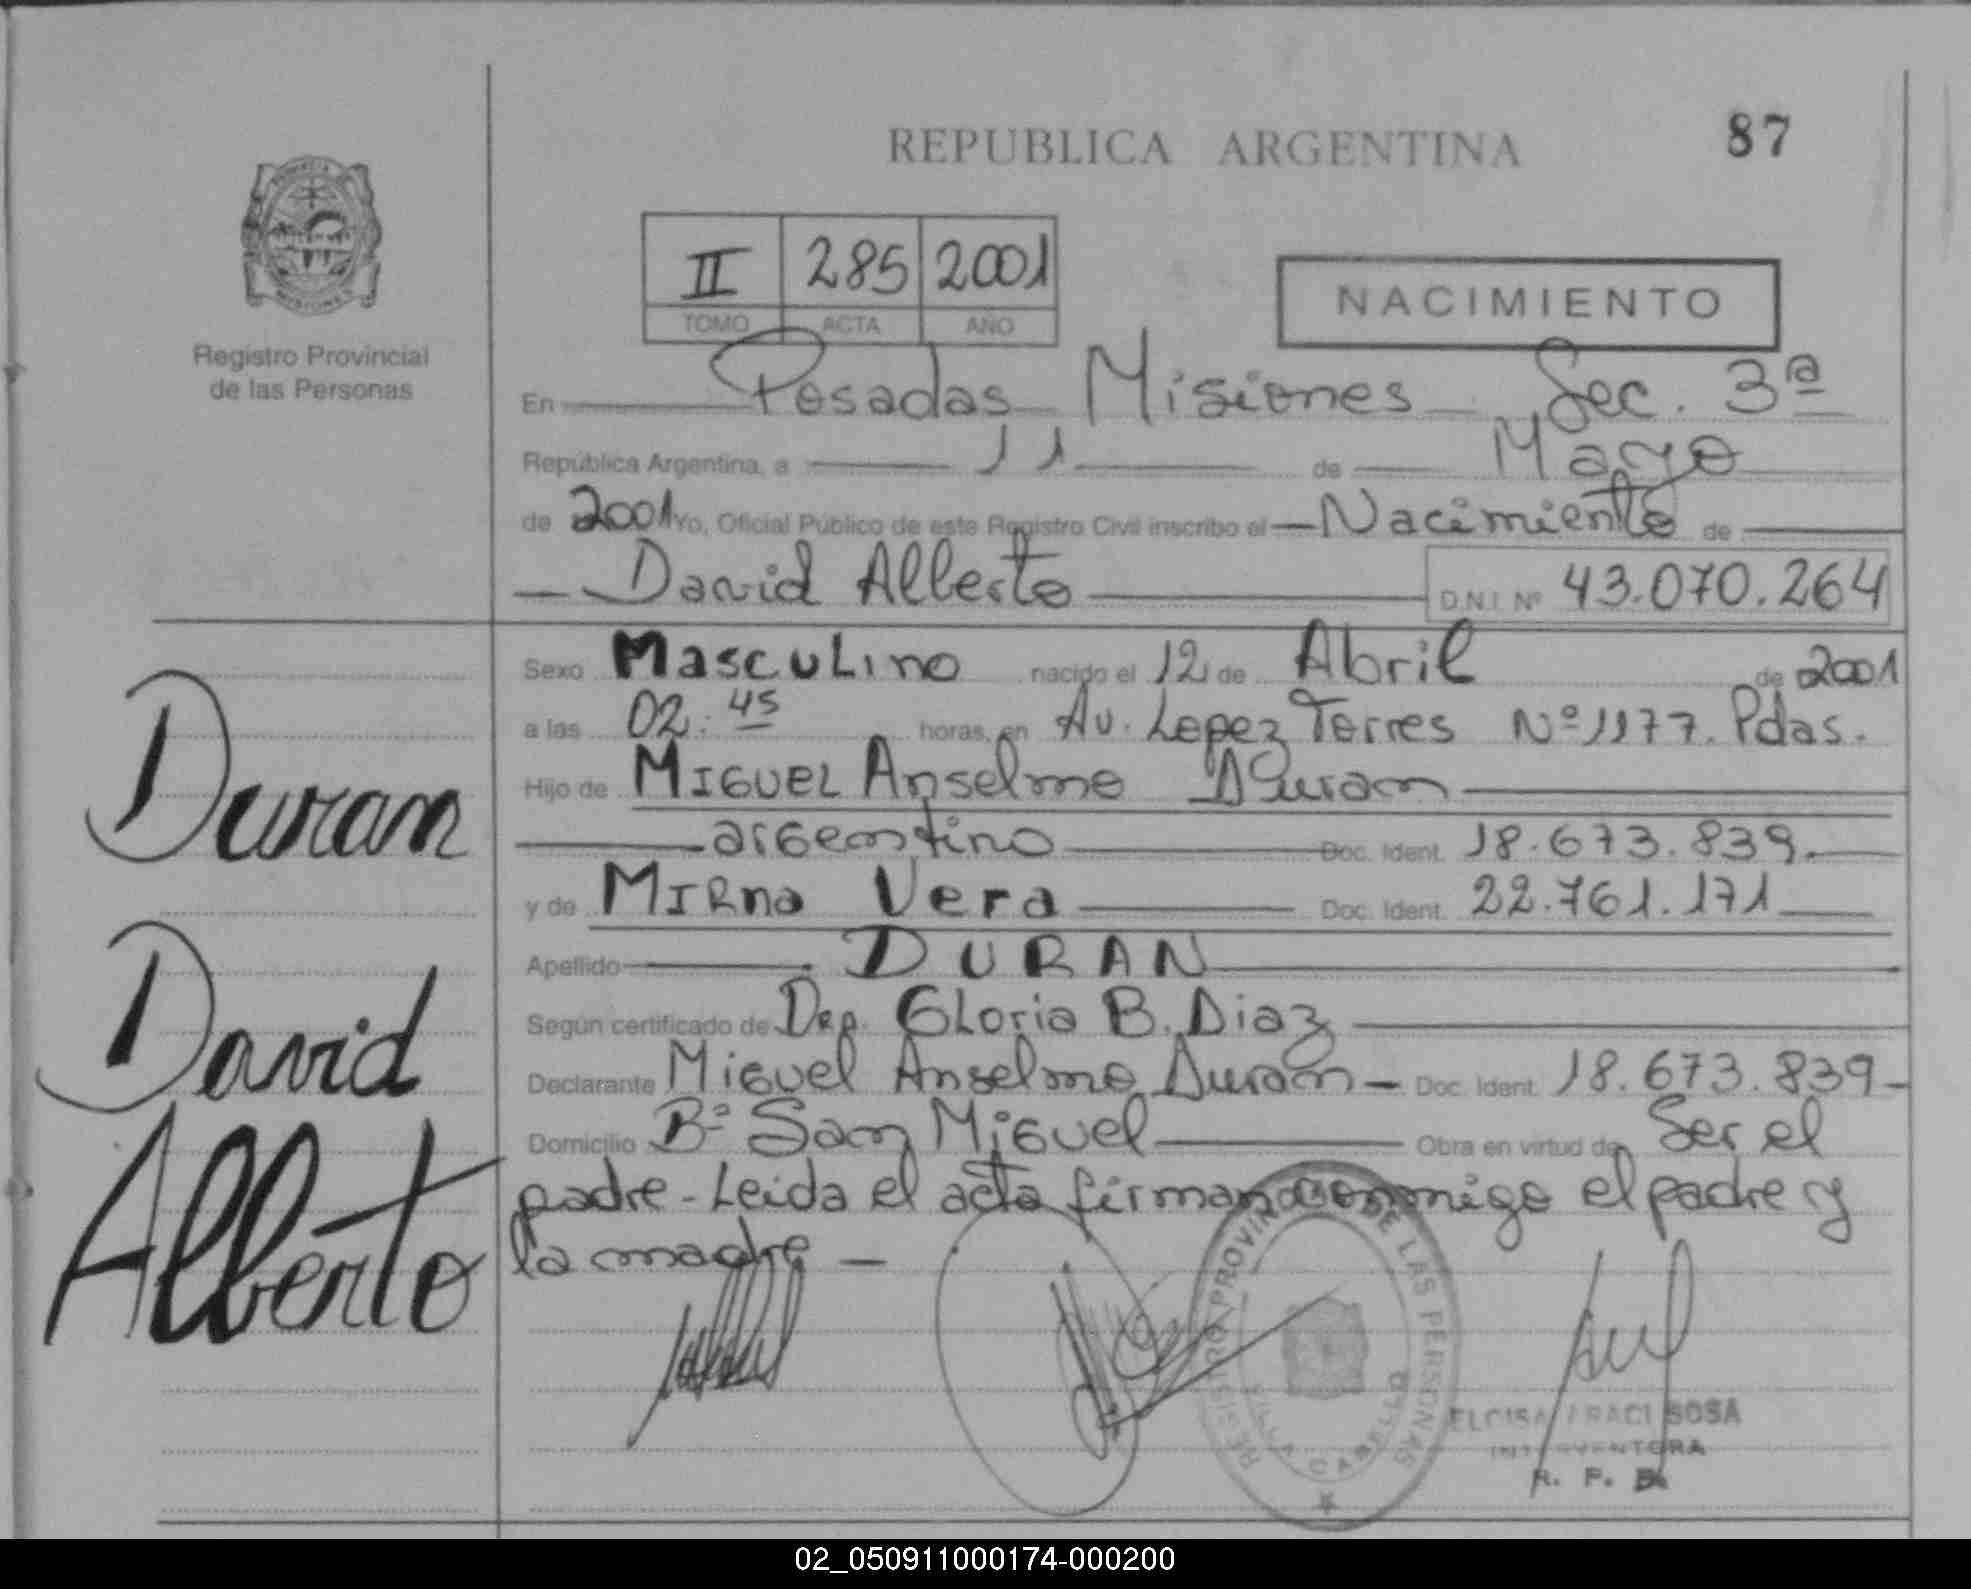 REPUBLICA ARGENTINA
87
PROVINCIA
MISIONES
Registro Provincial
de las Personas
II 285 2001
TOMO ACTA AÑO
NACIMIENTO
En Posadas Misiones Sec. 3ª
República Argentina, a 11 de Mayo
de 2001 Yo, Oficial Público de este Registro Civil inscribo el Nacimiento de
David Alberto D.N.I. Nº 43.070.264
Sexo Masculino nacido el 12 de Abril de 2001
a las 02:45 horas, en Av. Lopez Torres Nº 1177. Pdas.
Hijo de Miguel Anselmo Duran
argentino Doc. Ident. 18.673.839.
y de Mirna Vera Doc. Ident. 22.761.171
Apellido DURAN
Según certificado de Dra. Gloria B. Diaz
Declarante Miguel Anselmo Duran Doc. Ident. 18.673.839
Domicilio Bº San Miguel Obra en virtud de Ser el
padre - Leida el acta firman conmigo el padre y
la madre
Duran
David
Alberto
REGISTRO PROVINCIAL DE LAS PERSONAS
VILLA CABELLO
ELOISA ARACI SOSA
INTERVENTORA
R. P. P.
02_050911000174-000200